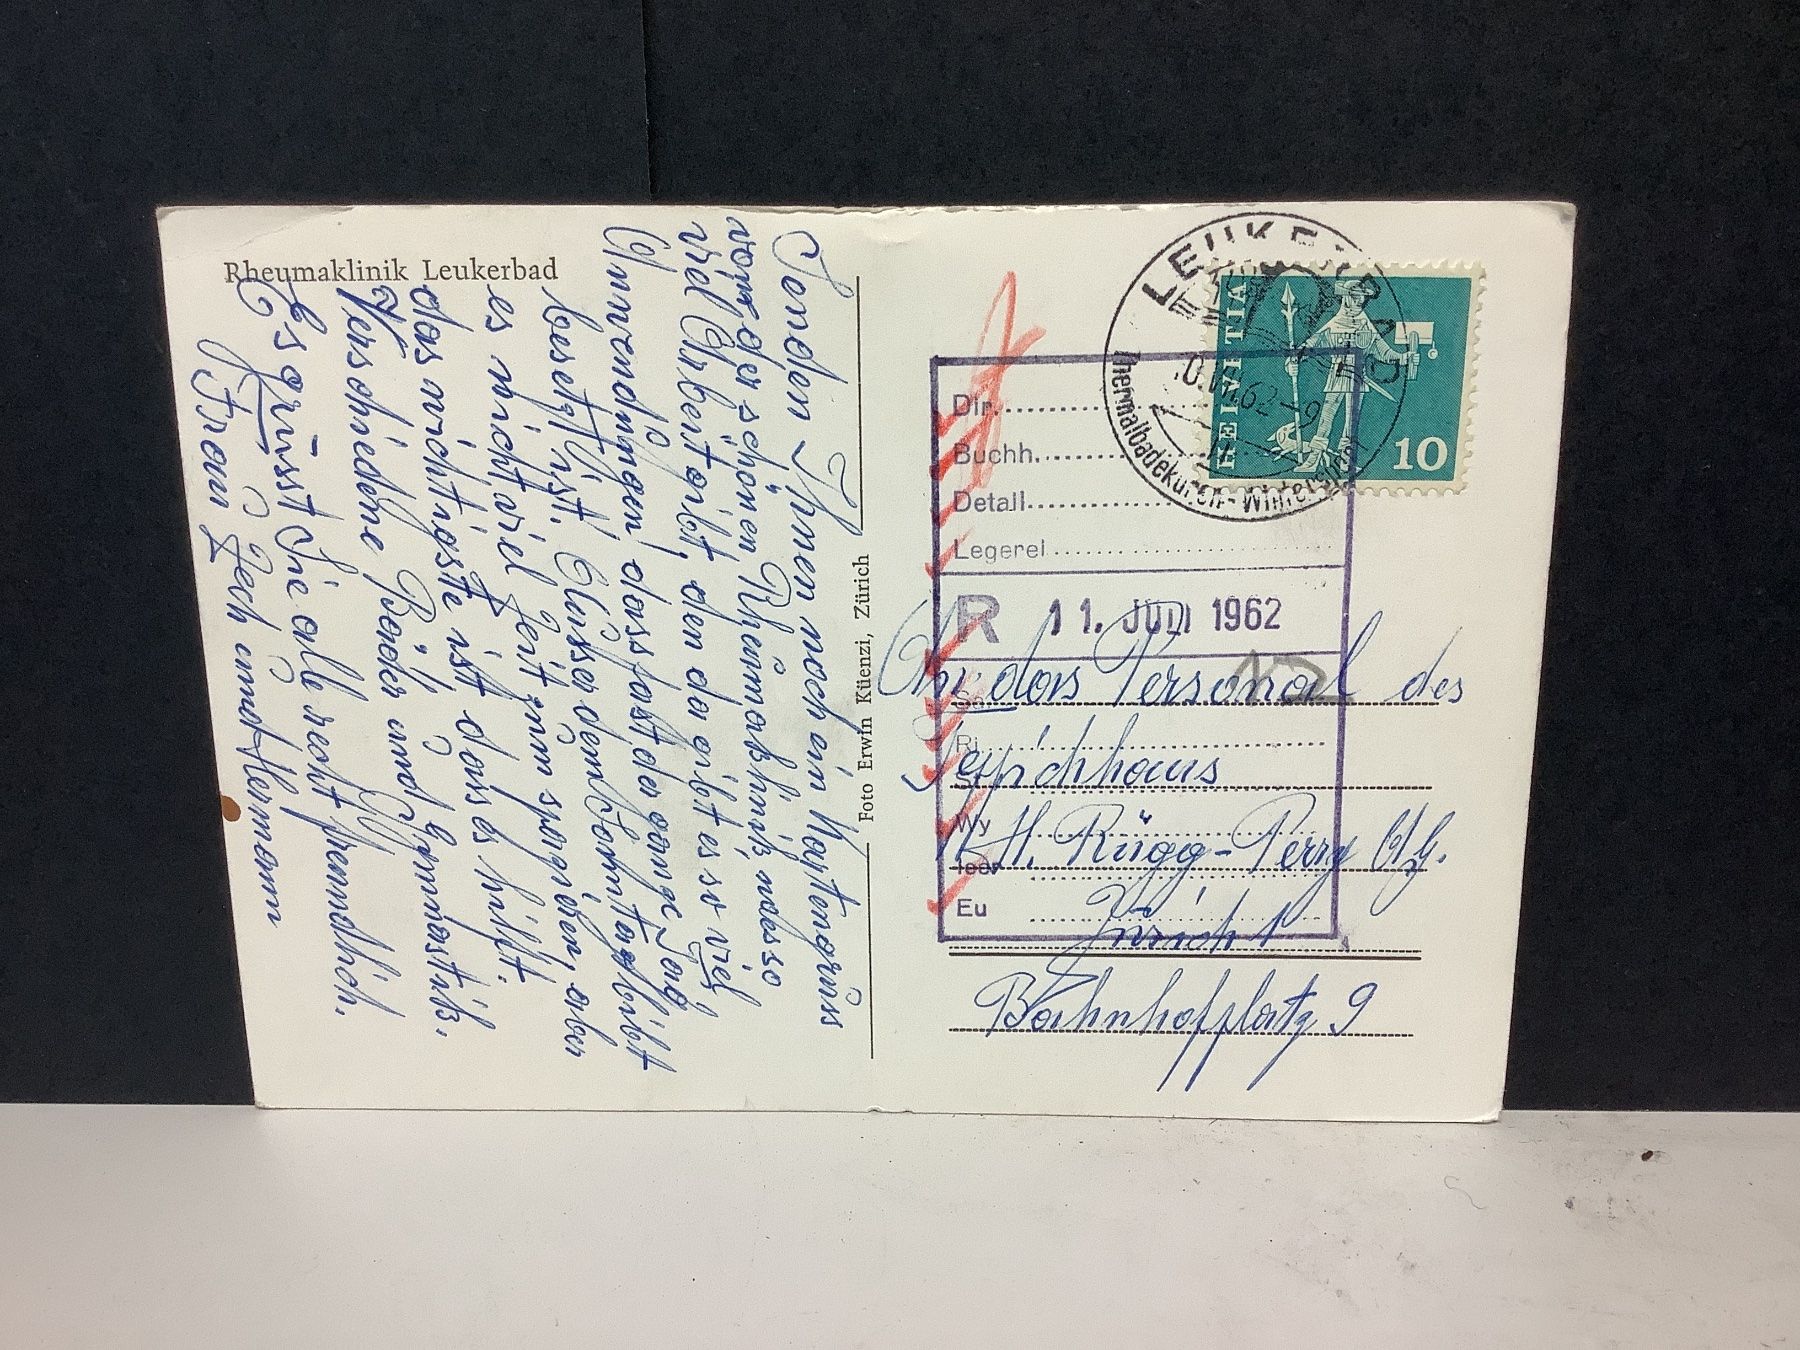 Rheumaklinik Leukerbad
Senden Ihnen noch ein Kartengruss
von der schönen Rheumaklinik, wo es so
viel Arbeit gibt, den da gibt es so viel
Anwendungen! dass fast der ganze Tag
besetzt ist. Ausser dem Sohntag bleibt
es nicht viel Zeit zum spazieren, aber
das wichtigste ist dass es hilft.
Verschiedene Bäder und Gymnastik.
Es grüsst Sie alle recht freundlich.
Frau Zech und Hermann
Foto Erwin Küenzi, Zürich
LEUKERBAD
Thermalbadekuren - Wintersport
0.VII.62-9
HELVETIA
10
Dir.
Buchh.
Detail
Legerei
R 11. JULI 1962
Ri
St
Wy
Teer
Eu
An das Personal des
Teppichhaus
H. Rüegg-Perry A.G.
Zürich 1
Bahnhofplatz 9